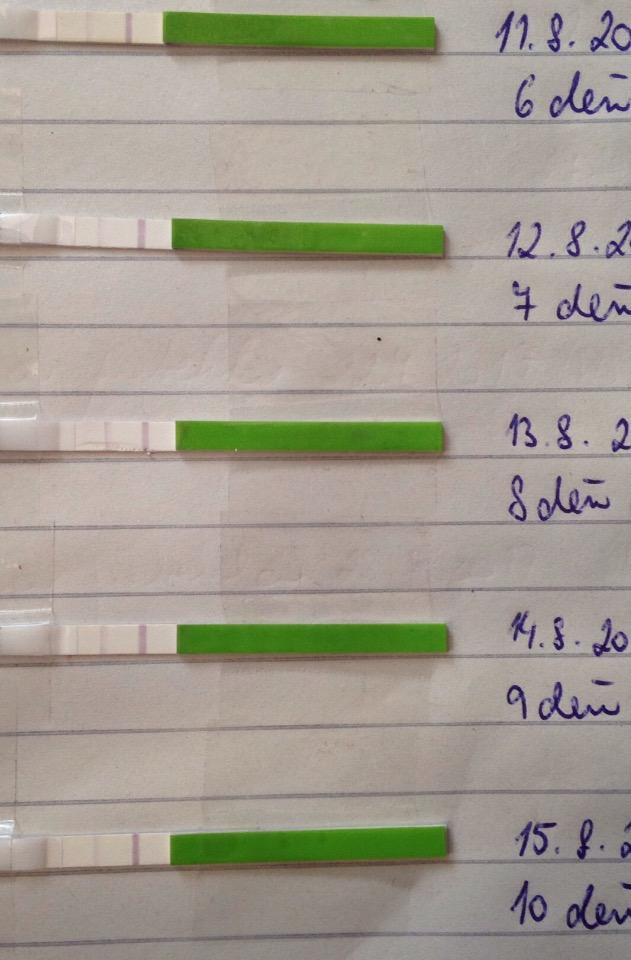 11. 8. 20
6 deň
12. 8. 2
7 deň
13. 8. 2
8 deň
14. 8. 20
9 deň
15. 8. 2
10 deň